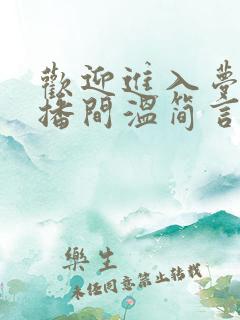 歡迎進入夢
播間溫简言
樂生
未任同意禁止转载